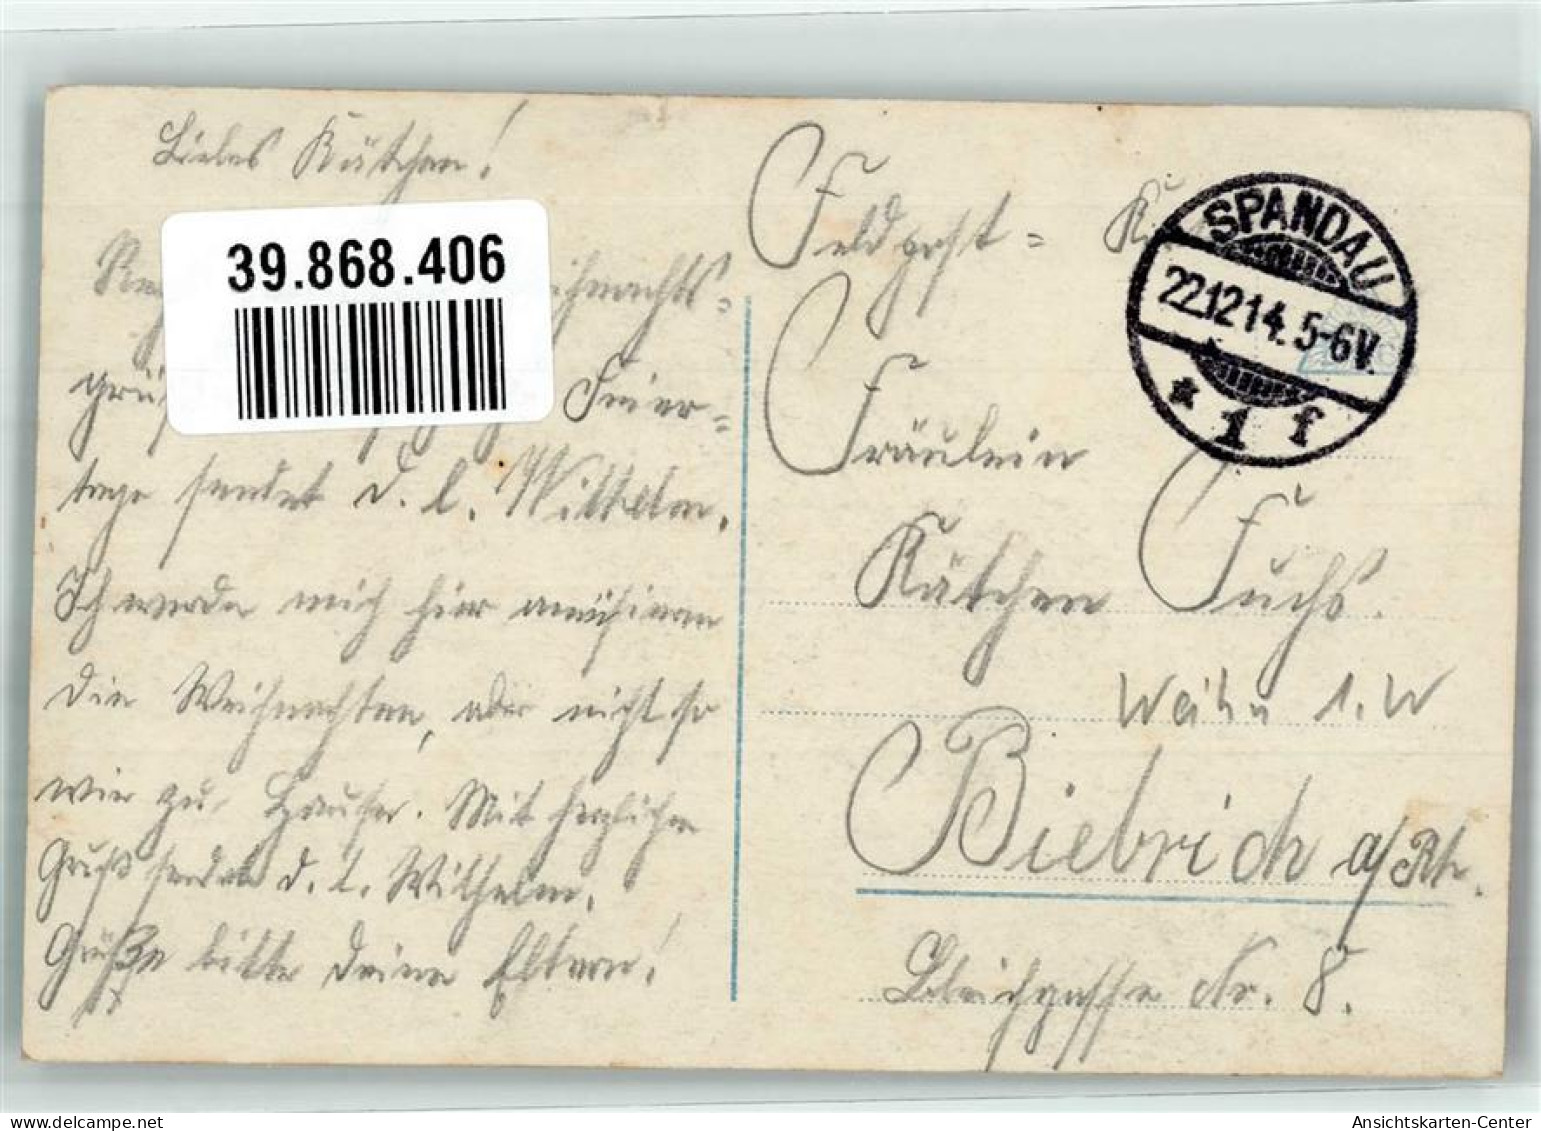 Liebes Kätchen!
39.868.406
Weihnachts-
Feier-
tage sendet d. l. Wilhelm.
Ich werde mich hier amüsieren
die Weihnachten, aber nicht so
wie zu Hause. Mit herzlichen
Gruß sendet d. l. Wilhelm.
Grüße bitte deine Eltern!
Feldpost=
SPANDAU
22.12.14. 5-6V.
* 1 f
Fräulein
Kätchen Fuchs.
1. W
Biebrich a/Rh.
Bleichgasse Nr. 8.
www.delcampe.net
Ansichtskarten-Center